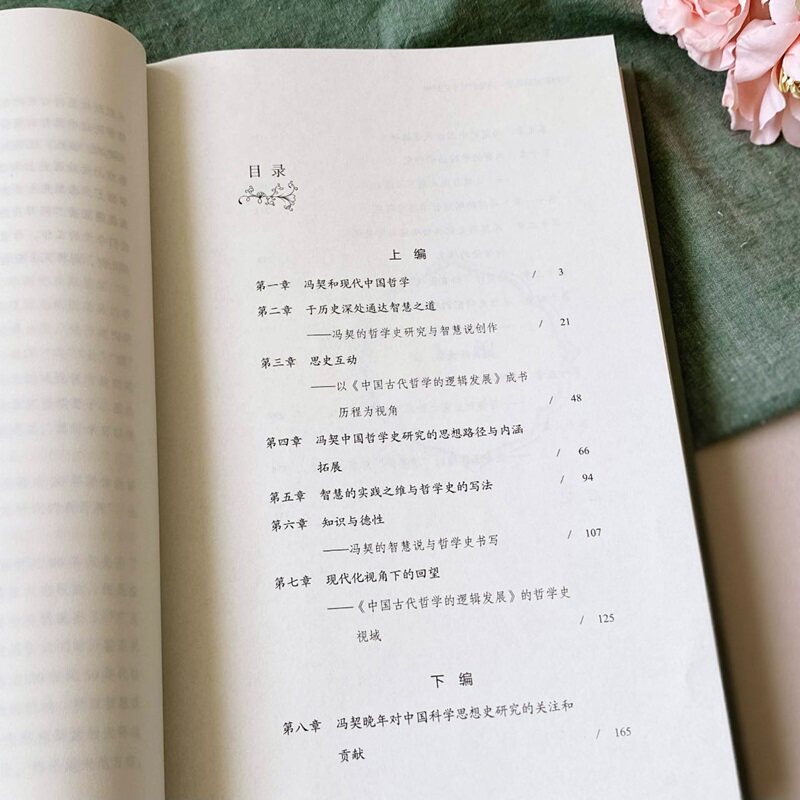 目录
上编
第一章 冯契和现代中国哲学 / 3
第二章 于历史深处通达智慧之道
——冯契的哲学史研究与智慧说创作 / 21
第三章 思史互动
——以《中国古代哲学的逻辑发展》成书
历程为视角 / 48
第四章 冯契中国哲学史研究的思想路径与内涵
拓展 / 66
第五章 智慧的实践之维与哲学史的写法 / 94
第六章 知识与德性
——冯契的智慧说与哲学史书写 / 107
第七章 现代化视角下的回望
——《中国古代哲学的逻辑发展》的哲学史
视域 / 125
下编
第八章 冯契晚年对中国科学思想史研究的关注和
贡献 / 165